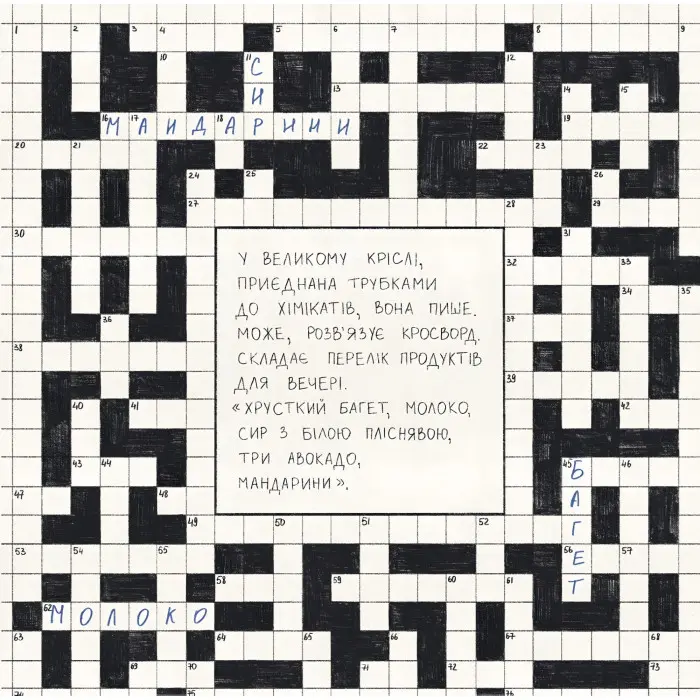 1 2 3 4 5 6 7 8 9
10 11 С 12
И 13 14 15
16 МАНДАРИНИ 17 18 19
20 21 22 23
24 25 26
27 28 29
У ВЕЛИКОМУ КРІСЛІ,
ПРИЄДНАНА ТРУБКАМИ
ДО ХІМІКАТІВ, ВОНА ПИШЕ.
МОЖЕ, РОЗВ'ЯЗУЄ КРОСВОРД.
СКЛАДАЄ ПЕРЕЛІК ПРОДУКТІВ
ДЛЯ ВЕЧЕРІ.
«ХРУСТКИЙ БАГЕТ, МОЛОКО,
СИР З БІЛОЮ ПЛІСНЯВОЮ,
ТРИ АВОКАДО,
МАНДАРИНИ».
30 31
32 33
34 35
36 37
38
39
40 41 42
43 44 45 Б 46
47 48 А
49 50 51 52 Г
53 54 55 56 Е 57
58 59 60 61 Т
62 МОЛОКО
63 64 65 66 67 68
69 70 71 72 73
74 75 76